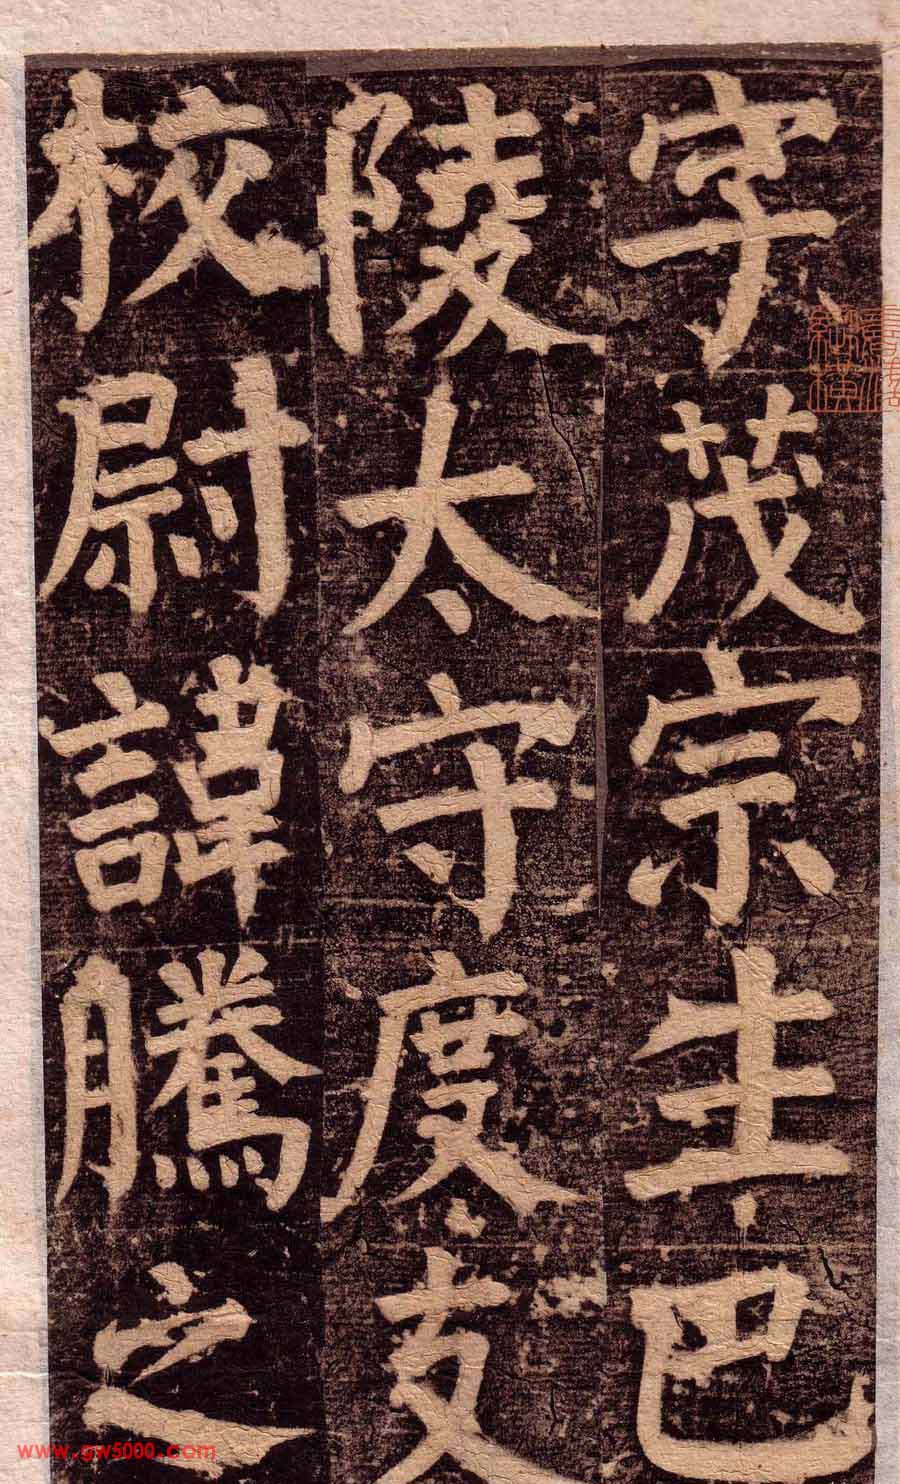 字茂宗生巴
陵太守度支
校尉諱騰之
www.gw5000.com